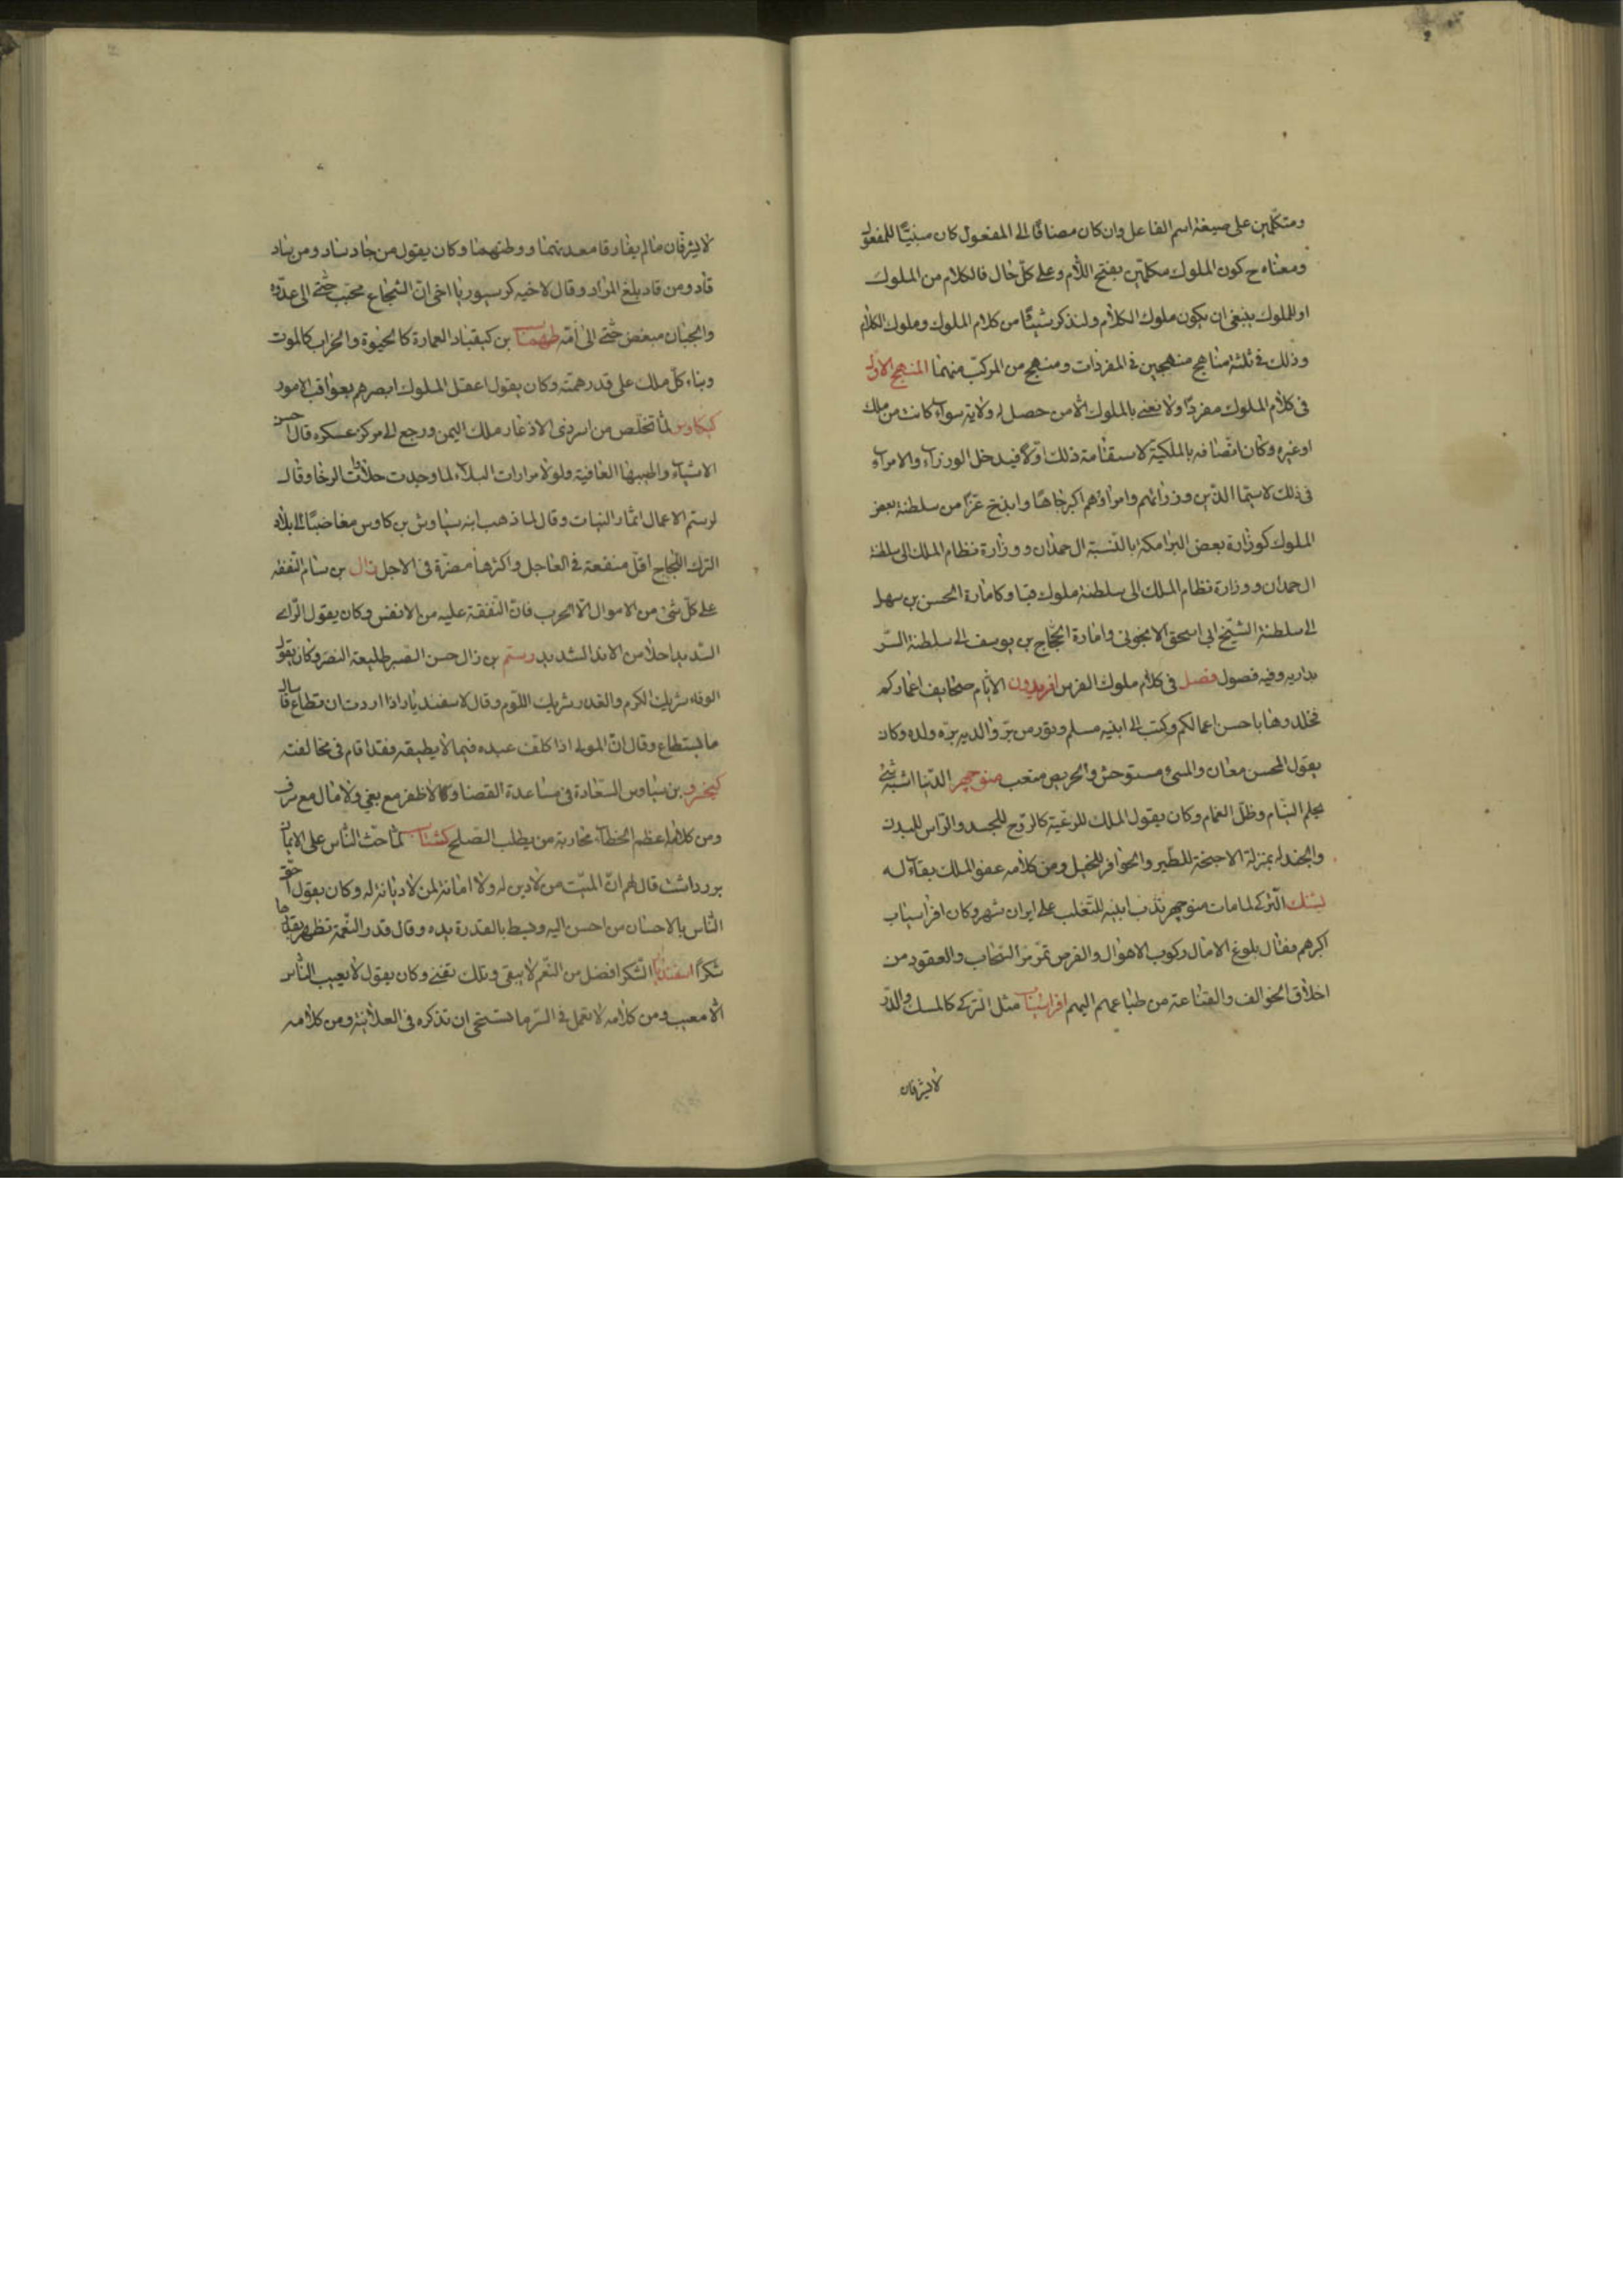 ومتكلمين على صيغة اسم الفاعل وان كان مضافا الى المفعول كان مبنيا للمفعول
ومعناه ح كون الملوك مكلمين بفتح اللام وعلى كل حال فالكلام من الملوك
او للملوك ينبغى ان يكون ملوك الكلام ولنذكر شيئا من كلام الملوك وملوك الكلام
وذلك فى ثلثة مناهج منهجين فى المفردات ومنهج من المركب منهما المنهج الاول
فى كلام الملوك مفردا ولا نعنى بالملوك الا من حصل له ولاية سواء كانت من ملك
او غيره وكان اتصافه بالملكية لاستقامة ذلك اولا فيدخل الوزراء والامراء
فى ذلك لا سيما الذين وزرائهم وامراؤهم اكبر جاها وابذخ عزا من سلطنة بعض
الملوك كوزارة بعض البرامكة بالنسبة ال حمدان ووزارة نظام الملك الى سلطنة
ال حمدان ووزارة نظام الملك الى سلطنة ملوك وكامارة الحسن بن سهل
الى سلطنة الشيخ ابى اسحق الانجونى وامارة الحجاج بن يوسف الى سلطنة
وفيه فصول فصل فى كلام ملوك الفرس افريدون الايام صحايف اعماركم
فخلدوها باحسن اعمالكم وكتب الى ابنيه مسلم وتور من بر والديه بره ولده وكان
يقول المحسن معان والمسئ مستوحش والحريص متعب منوچهر الدنيا اشبه شئ
بحلم النيام وظل الغمام وكان يقول الملك للرعية كالروح للجسد والراس للبدن
والجند له بمنزلة الاجنحة للطير والحوافر للخيل ومن كلامه عفو الملك بقاء له
بشنك التركى لما مات منوچهر ندب ابنيه للتغلب على ايران شهر وكان افراسياب
اكبرهم فقال بلوغ الامال ركوب الاهوال والفرص تمر مر السحاب والعقود من
اخلاق الخوالف والقناعة من طباع البهم افراسياب مثل التركى كالمسك والدر
لا يشرفان
لا يشرفان ما لم يفارقا معدنهما ووطنهما وكان يقول من جاد ساد ومن ساد
قاد ومن قاد بلغ المراد وقال لاخيه كرسيور يا اخى ان الشجاع محبب حتى الى عدوه
والجبان مبغض حتى الى امه طهماسب بن كيقباد العمارة كالحيوة والخراب كالموت
وبناء كل ملك على قدر همته وكان يقول اعقل الملوك ابصرهم بعواقب الامور
كيكاوس لما تخلص من اسر ذى الاذعار ملك اليمن ورجع الى مركز عسكره قال احسن
الاشياء واطيبها العافية ولولا مرارات البلاء لما وجدت حلاوات الرخا وقال
لرستم الاعمال اثمار النيات وقال لما ذهب ابنه سياوش بن كاوس مغاضبا الى بلاد
الترك اللجاج اقل منفعة فى العاجل واكثرها مضرة فى الاجل زال بن سام النفقة
على كل شئ من الاموال الا الحرب فان النفقة عليه من الانفس وكان يقول الراى
السديد احلا من الايد الشديد رستم بن زال حسن الصبر طليعة النصر وكان يقول
الوفاء شريك الكرم والغدر شريك اللؤم وقال لاسفنديار اذا اردت ان تطاع فاسال
ما يستطاع وقال ان المولى اذا كلف عبده فيما لا يطيقه فقد اقام فى مخالفته
كيخسرو بن سياوس السعادة فى مساعدة القضا وقال لا ظفر مع بغى ولا مال مع سرف
ومن كلامه اعظم الخطاء محاربة من يطلب الصلح كشتاسب لما حث الناس على الايمان
بزرداشت قال لهم ان الميت من لا دين له ولا امانة لمن لا ديانة له وكان يقول احق
الناس بالاحسان من احسن اليه وبسط بالقدرة يده وقال قدر النعمة تظهر بقابلها
شكرا اسفنديار الشكر افضل من النعم لانه يبقى وتلك تفنى وكان يقول لا يعيب الناس
الا معيب ومن كلامه لا تعمل فى السر ما تستحى ان تذكره فى العلانية ومن كلامه